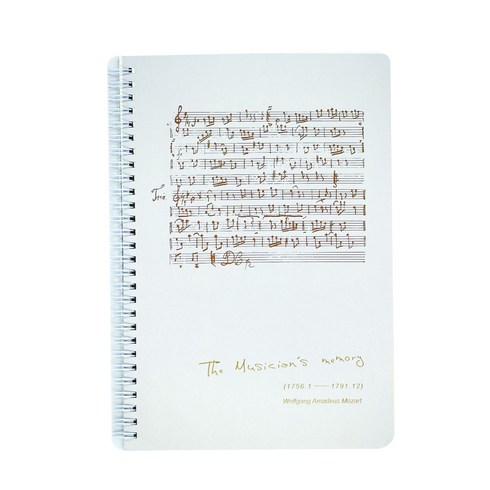 Trio
The Musician's memory
(1756.1 — 1791.12)
Wolfgang Amadeus Mozart